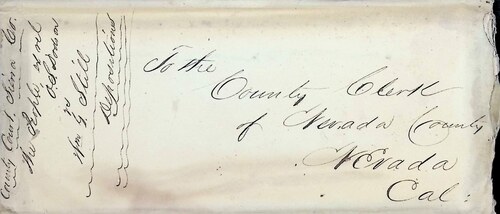 County Court, Sierra Co.
The People ex rel
vs
Wm G. Still
Depositions
To the
County Clerk
of Nevada County
Nevada
Cal: